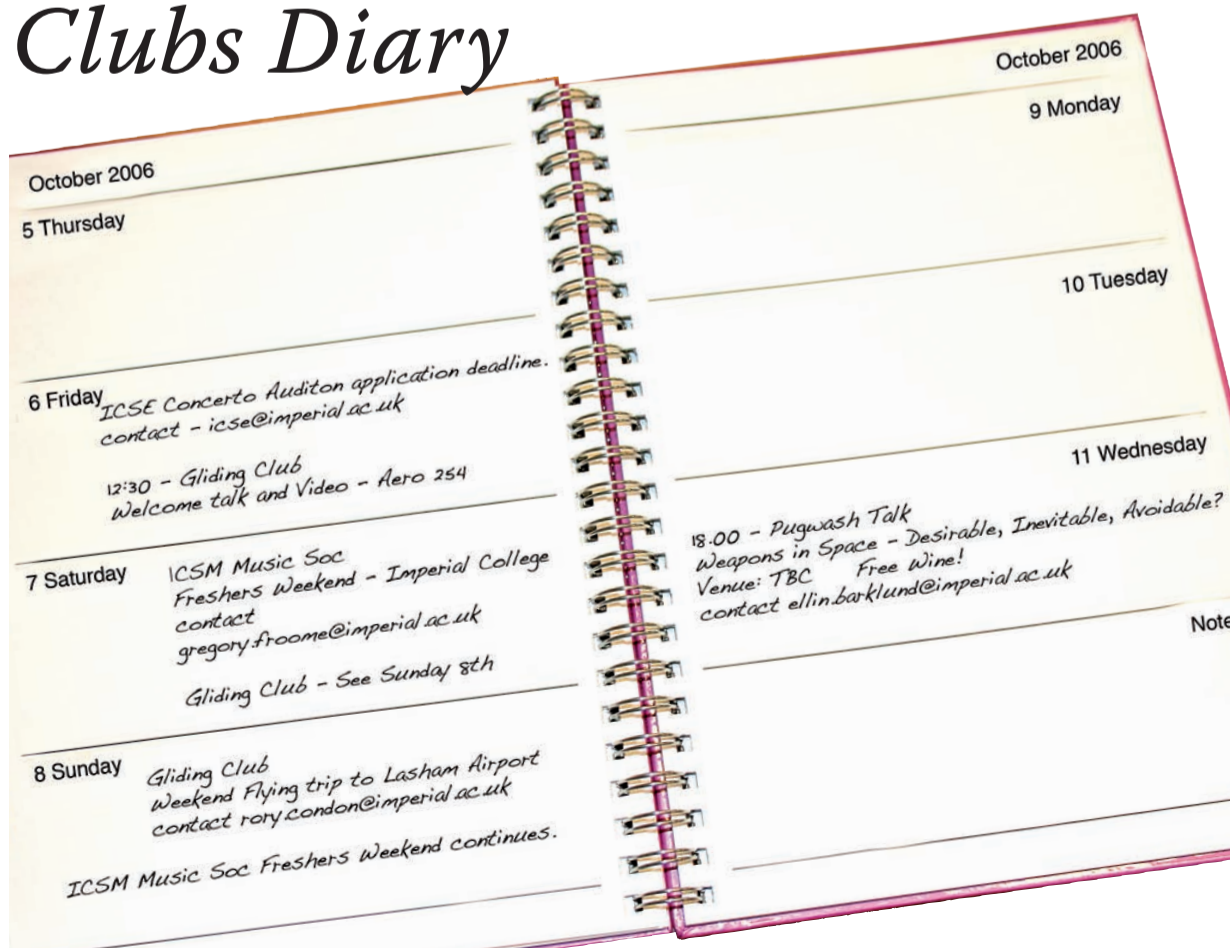 Clubs Diary
October 2006
5 Thursday
6 Friday
ICSE Concerto Auditon application deadline.
contact - icse@imperial.ac.uk
12:30 - Gliding Club
Welcome talk and Video - Aero 254
7 Saturday
ICSM Music Soc
Freshers Weekend - Imperial College
contact
gregory.froome@imperial.ac.uk
Gliding Club - See Sunday 8th
8 Sunday
Gliding Club
Weekend Flying trip to Lasham Airport
contact rory.condon@imperial.ac.uk
ICSM Music Soc Freshers Weekend continues.
October 2006
9 Monday
10 Tuesday
11 Wednesday
18.00 - Pugwash Talk
Weapons in Space - Desirable, Inevitable, Avoidable?
Venue: TBC Free Wine!
contact ellin.barklund@imperial.ac.uk
Note